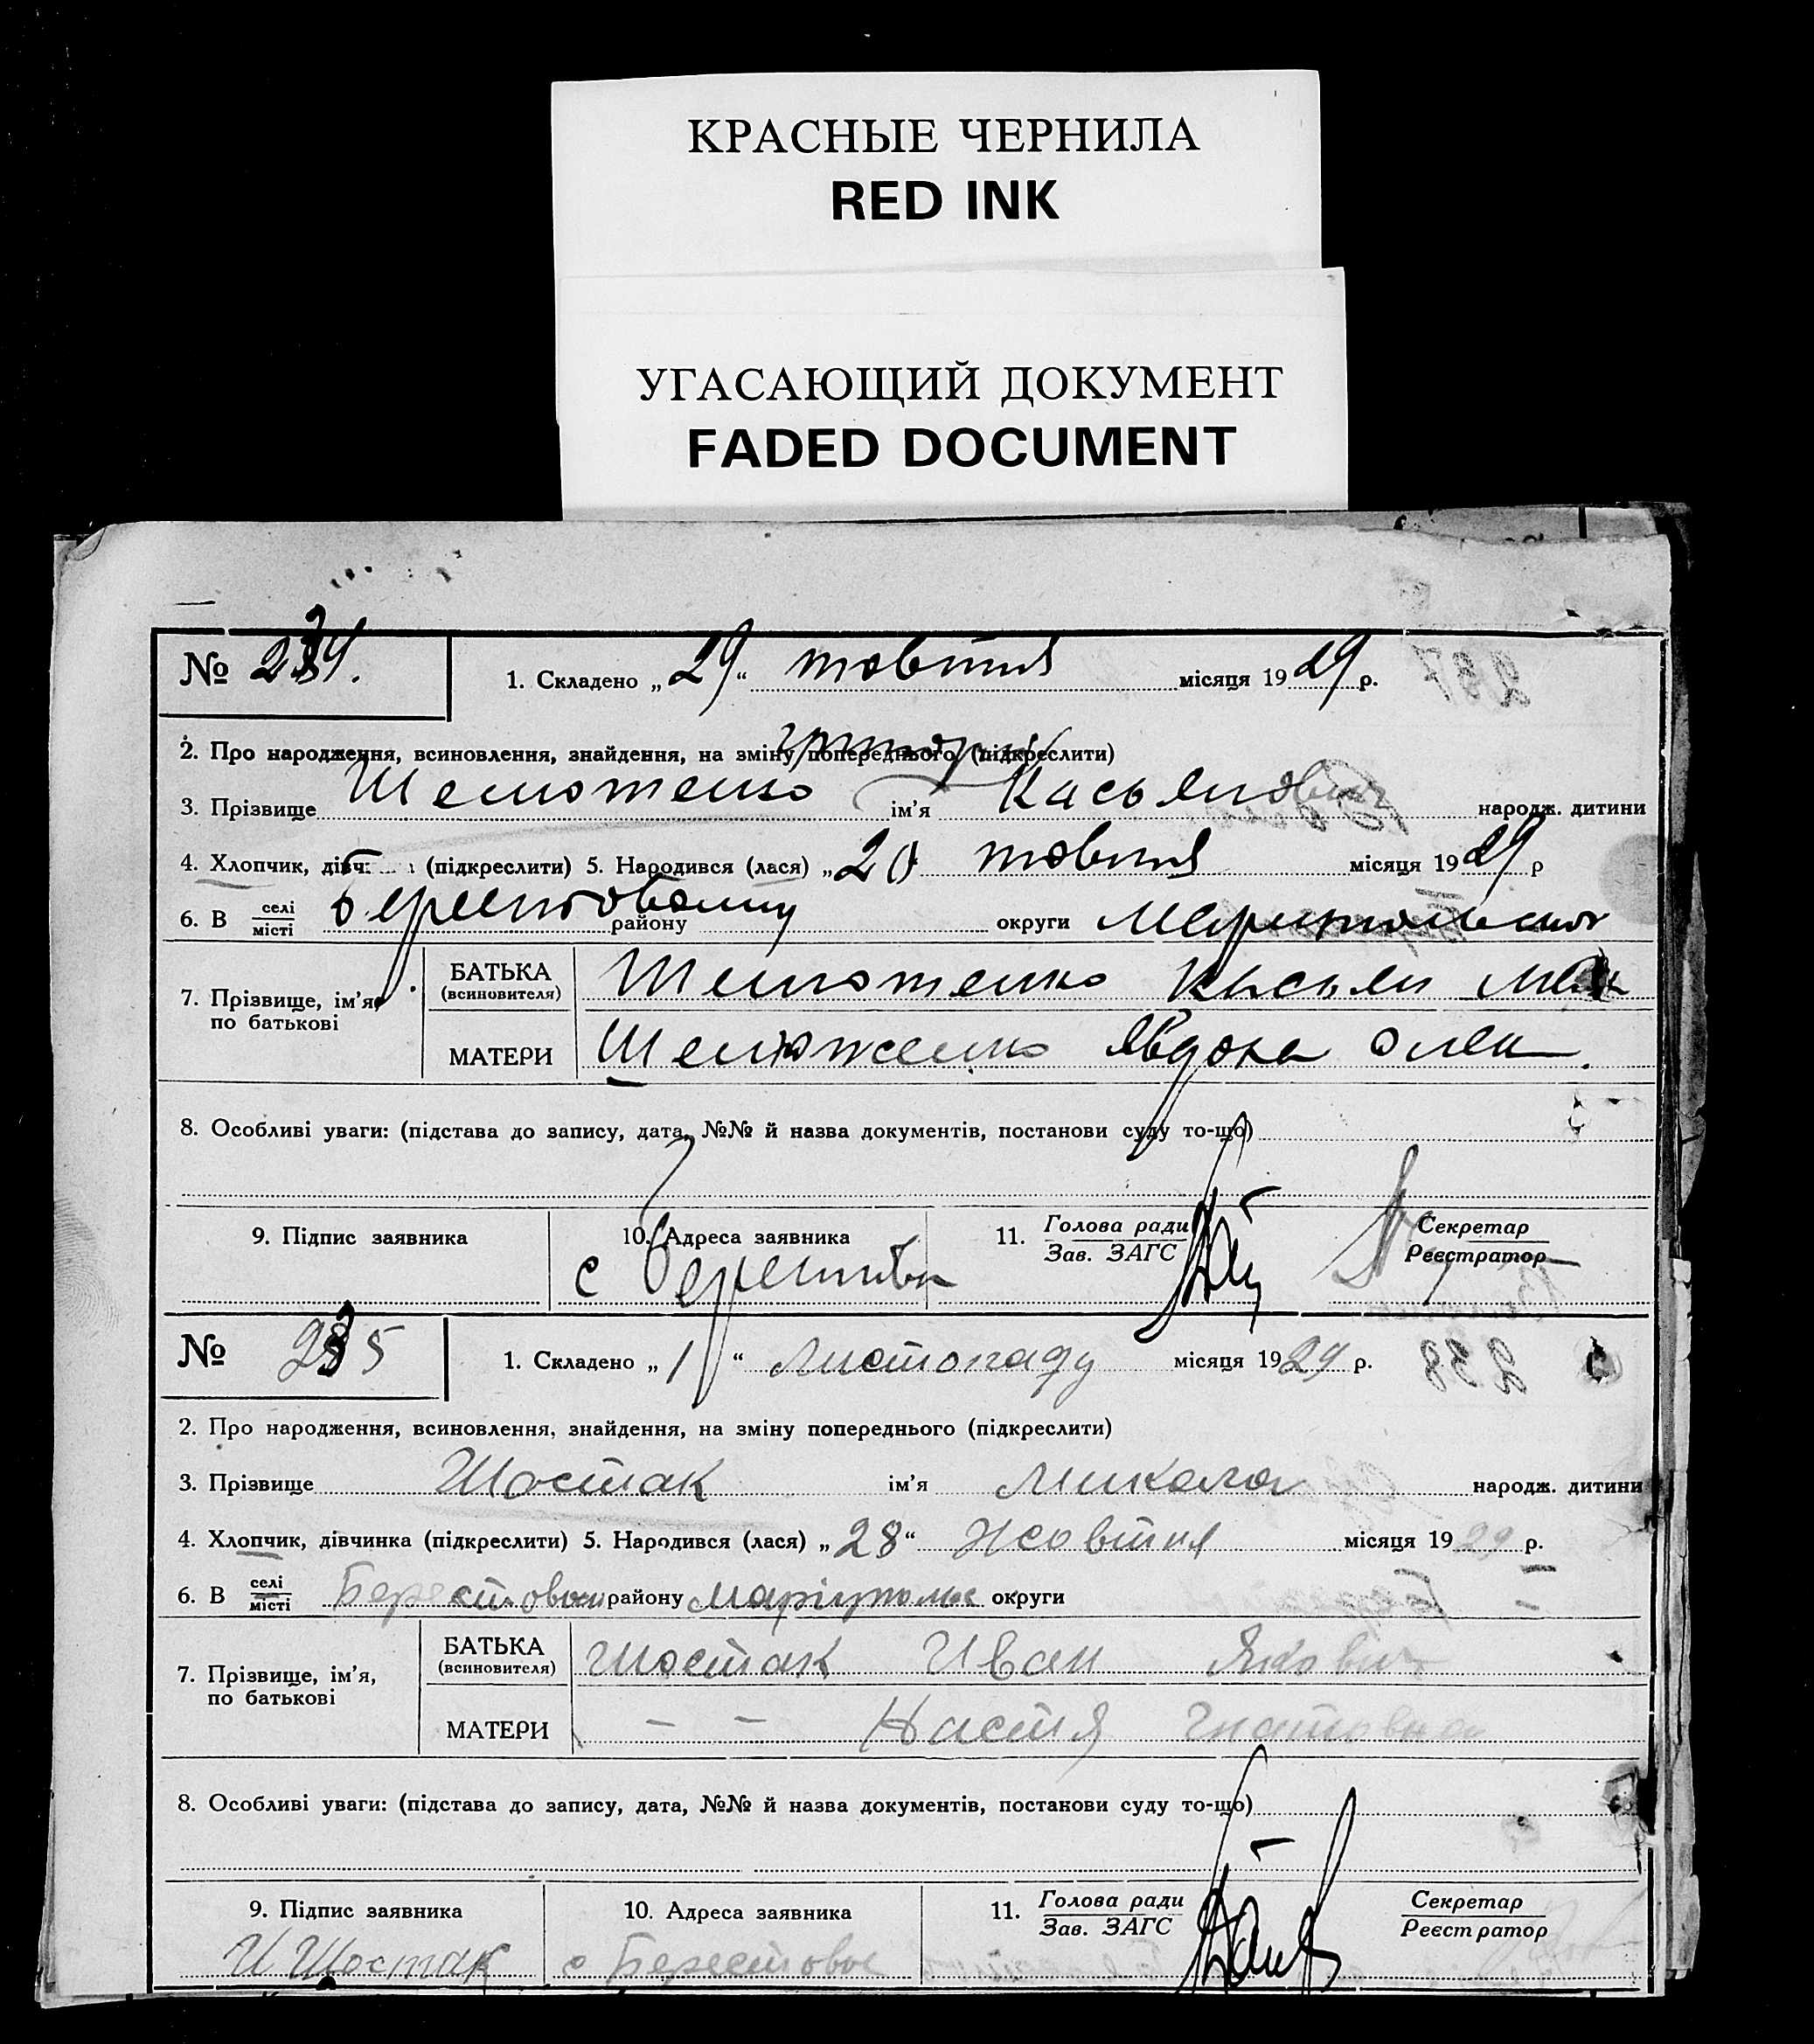 КРАСНЫЕ ЧЕРНИЛА
RED INK
УГАСАЮЩИЙ ДОКУМЕНТ
FADED DOCUMENT
№ 234. 1. Складено „29“ жовтня місяця 1929 р.
2. Про народження, всиновлення, знайдення, на зміну попереднього (підкреслити)
Григорий
3. Прізвище ім’я Касьянович народж. дитини
4. Хлопчик, (підкреслити) 5. Народився (лася) „20 жовтня місяця 1929 р
6. В селі місті Берестовому району округи
7. Прізвище, ім’я, по батькові
БАТЬКА (всиновителя) Касьян
МАТЕРИ Явдоха Олек.
8. Особливі уваги: (підстава до запису, дата, №№ й назва документів, постанови суду то-що)
9. Підпис заявника 10. Адреса заявника 11. Голова ради Зав. ЗАГС Секретар Реєстратор
с Берестове
№ 235 1. Складено „1“ листопаду місяця 1929 р.
2. Про народження, всиновлення, знайдення, на зміну попереднього (підкреслити)
3. Прізвище Шостак ім’я Микола народж. дитини
4. Хлопчик, дівчинка (підкреслити) 5. Народився (лася) „28“ Жовтня місяця 1929 р.
6. В селі місті Берестовом району Маріупольс округи
7. Прізвище, ім’я, по батькові
БАТЬКА (всиновителя) Шостак Иван Якович
МАТЕРИ – – Настя Гнатовна
8. Особливі уваги: (підстава до запису, дата, №№ й назва документів, постанови суду то-що)
9. Підпис заявника 10. Адреса заявника 11. Голова ради Зав. ЗАГС Секретар Реєстратор
И Шостак с Берестовое